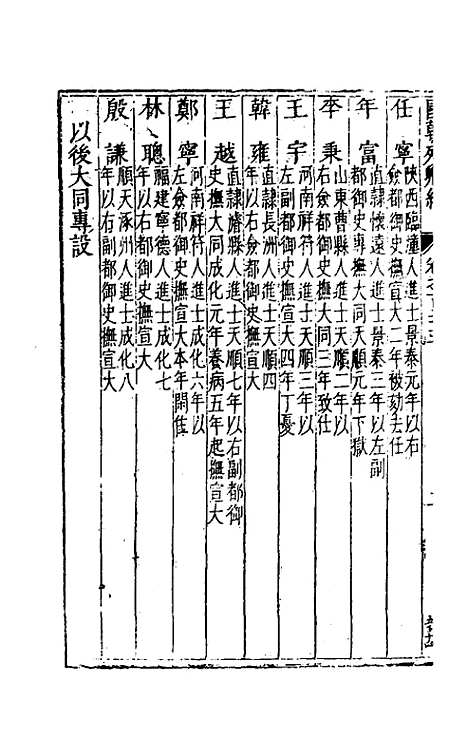 國朝列卿紀
任寧
陝西臨潼人進士景泰元年以右
僉都御史撫宣大二年被劾去任
年富
直隸懷遠人進士景泰三年以左副
都御史專撫大同天順元年下獄
李秉
山東曹縣人進士天順二年以
右僉都御史撫大同三年致仕
王宇
河南祥符人進士天順三年以
左副都御史撫宣大四年丁憂
韓雍
直隸長洲人進士天順四
年以右僉都御史撫宣大
王越
直隸濬縣人進士天順七年以右副都御
史撫大同成化元年養病五年起撫宣大
鄭寧
河南祥符人進士成化六年以
左僉都御史撫宣大本年閑住
林聰
福建寧德人進士成化七
年以右都御史撫宣大
殷謙
順天涿州人進士成化八
年以右副都御史撫宣大
以後大同專設